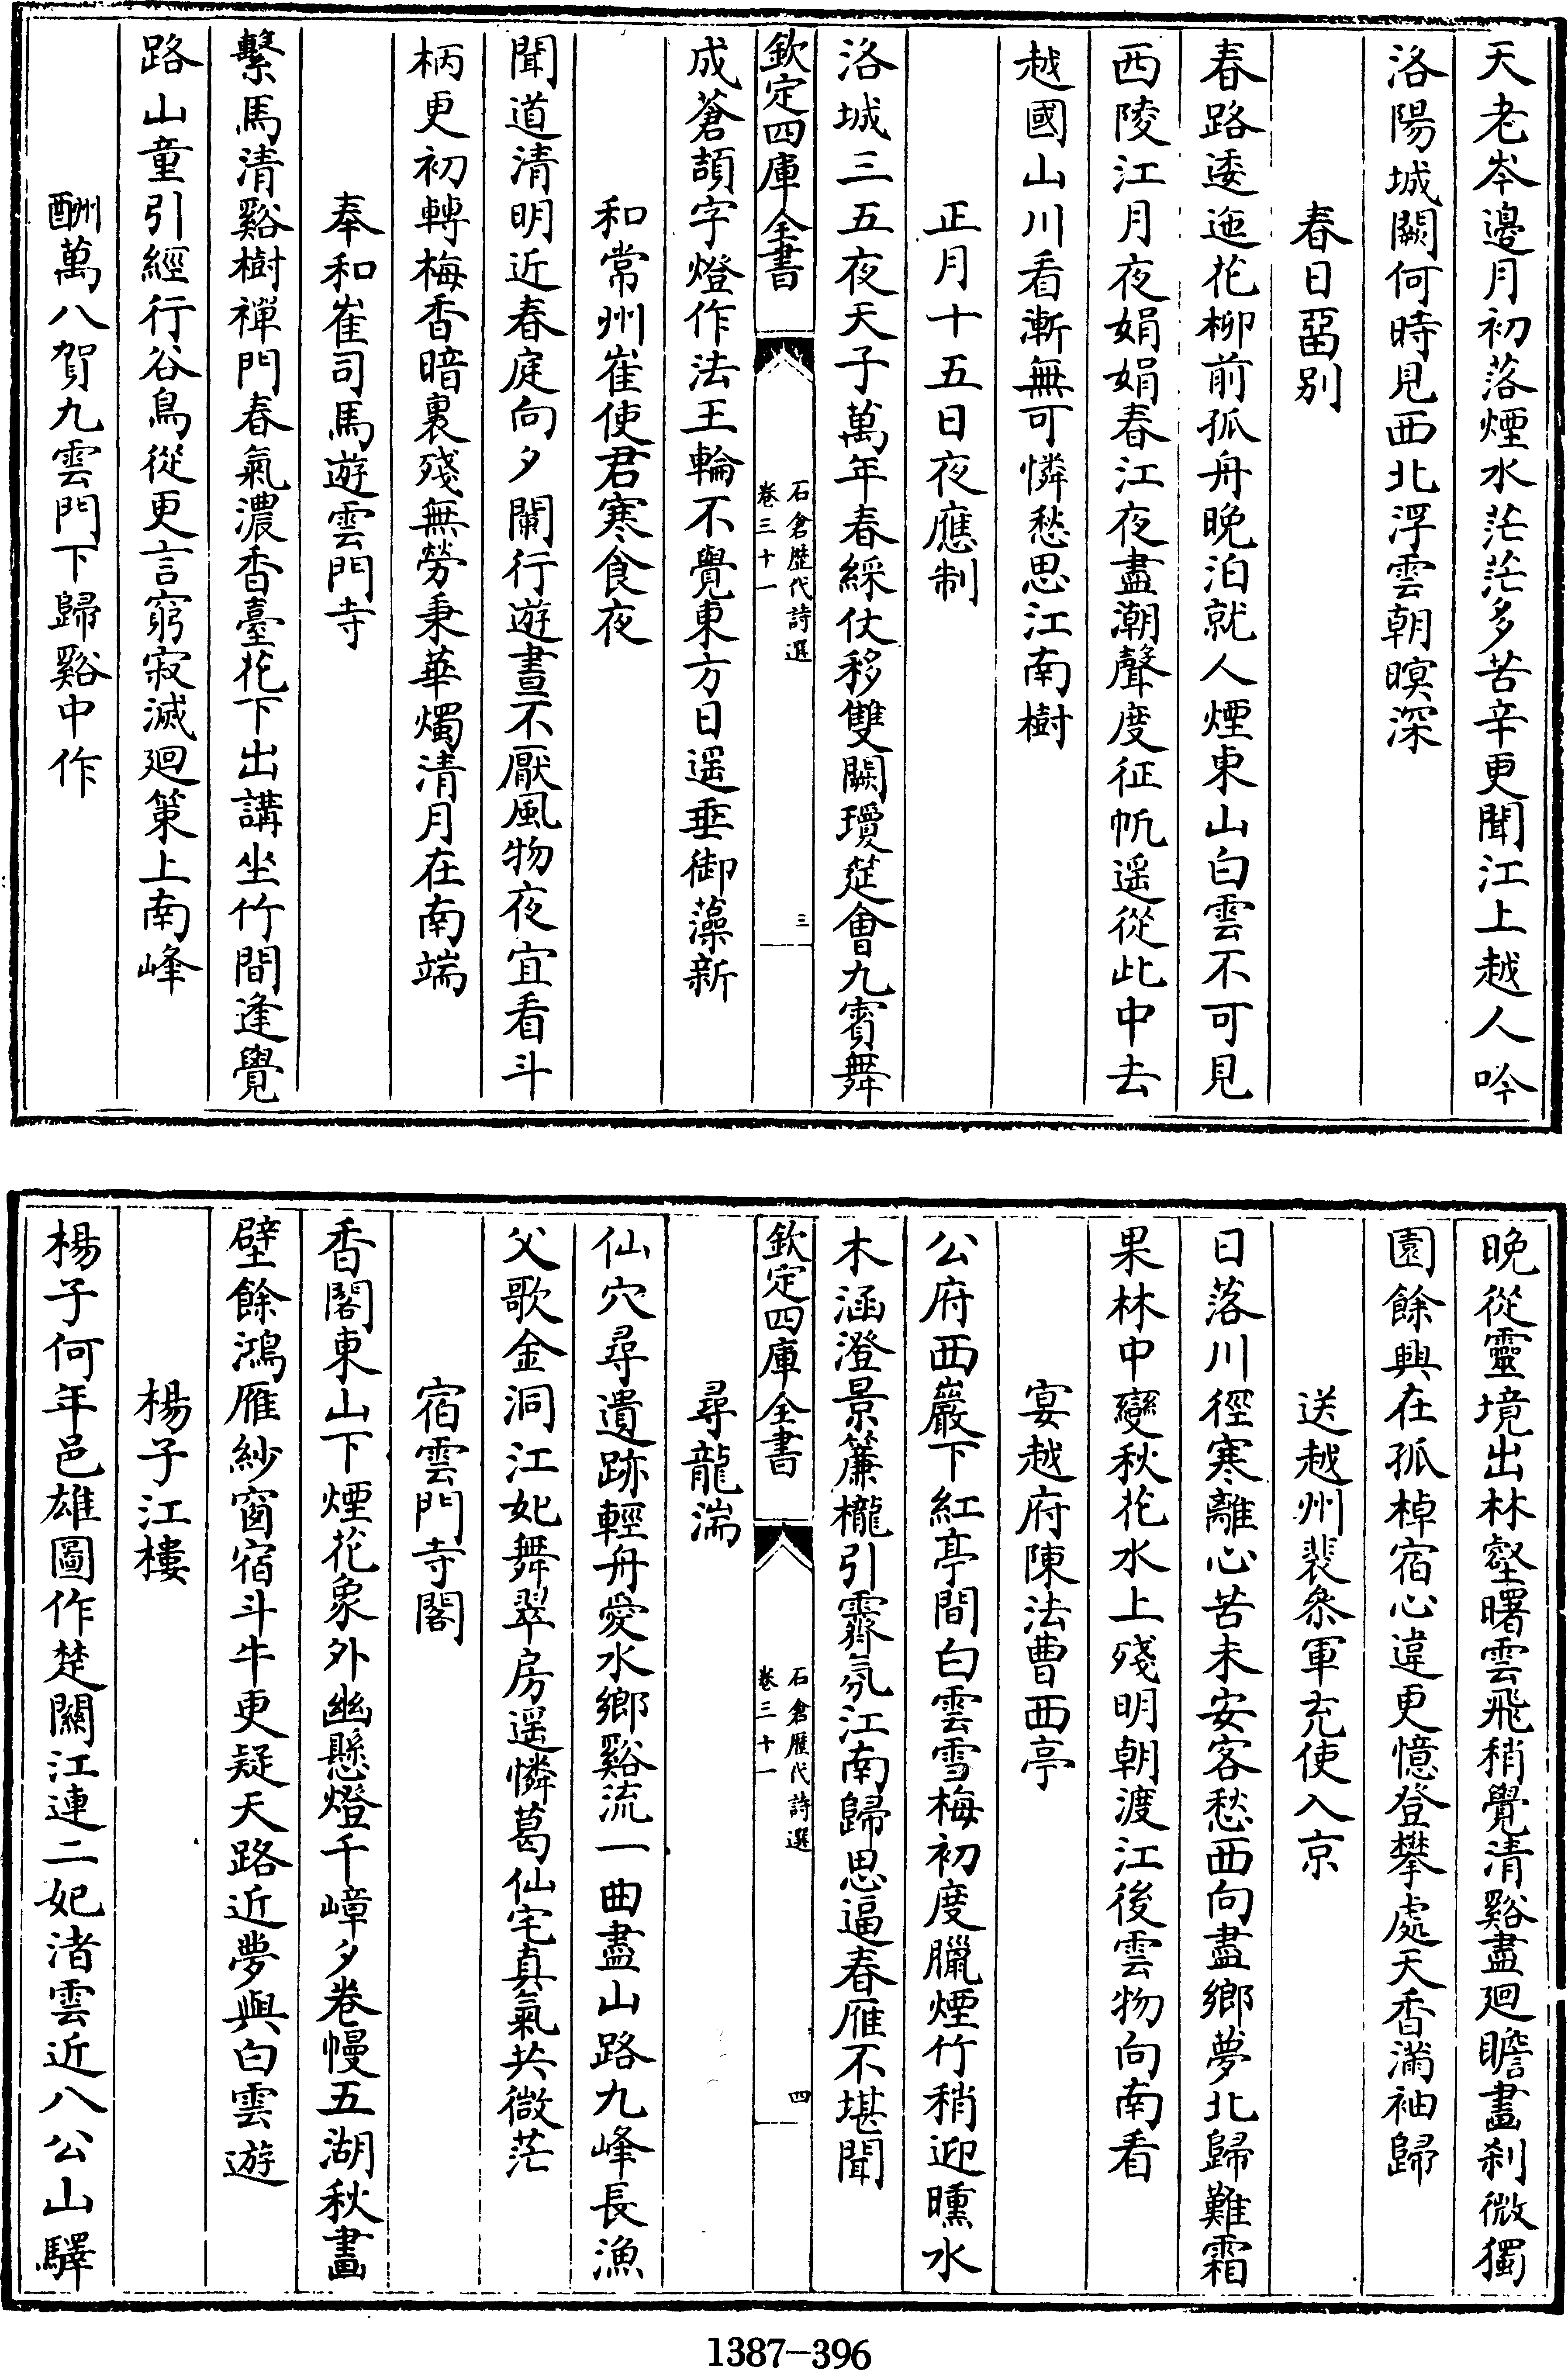 天老岑邊月初落煙水茫茫多苦辛更聞江上越人吟
洛陽城闕何時見西北浮雲朝暝深
春日畱别
春路逶迤花柳前孤舟晚泊就人煙東山白雲不可見
西陵江月夜娟娟春江夜盡潮聲度征帆遥從此中去
越國山川看漸無可憐愁思江南樹
正月十五日夜應制
洛城三五夜天子萬年春綵仗移雙闕瓊筵會九賓舞
欽定四庫全書
石倉歴代詩選
卷三十一
三
成蒼頡字燈作法王輪不覺東方日遥垂御藻新
和常州崔使君寒食夜
聞道清明近春庭向夕闌行遊晝不厭風物夜宜看斗
柄更初轉梅香暗裏殘無勞秉華燭清月在南端
奉和崔司馬遊雲門寺
繫馬清谿樹禪門春氣濃香臺花下出講坐竹間逢覺
路山童引經行谷鳥從更言窮寂滅廻策上南峰
酬萬八賀九雲門下歸谿中作
晚從靈境出林壑曙雲飛稍覺清谿盡廻瞻畫刹微獨
園餘興在孤棹宿心違更憶登攀處天香滿袖歸
送越州裴叅軍充使入京
日落川徑寒離心苦未安客愁西向盡鄉夢北歸難霜
果林中變秋花水上殘明朝渡江後雲物向南看
宴越府陳法曹西亭
公府西巖下紅亭間白雲雪梅初度臘煙竹稍迎曛水
木涵澄景簾櫳引霽氛江南歸思逼春雁不堪聞
欽定四庫全書
石倉歴代詩選
卷三十一
四
尋龍湍
仙穴尋遺跡輕舟愛水鄉谿流一曲盡山路九峰長漁
父歌金洞江妃舞翠房遥憐葛仙宅真氣共微茫
宿雲門寺閣
香閣東山下煙花象外幽懸燈千嶂夕卷幔五湖秋畫
壁餘鴻雁紗窗宿斗牛更疑天路近夢與白雲遊
楊子江樓
楊子何年邑雄圖作楚關江連二妃渚雲近八公山驛
1387—396